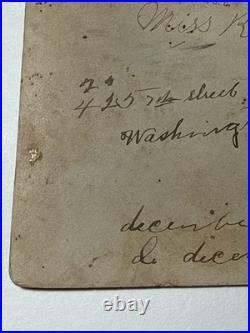 Miss K
425 7th street.
Washing
decembe
& decem